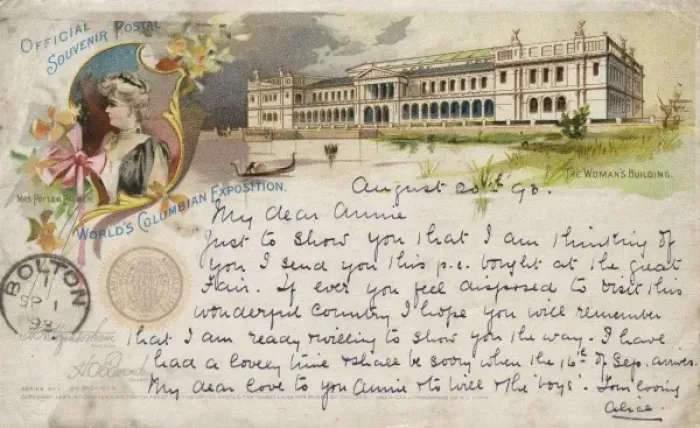 OFFICIAL
SOUVENIR POSTAL
MRS POTTER PALMER
WORLD'S COLUMBIAN EXPOSITION.
THE WOMAN'S BUILDING.
August 20th 93.
My dear Annie
Just to show you that I am thinking of
you I send you this p.c. bought at the great
Fair. If ever you feel disposed to visit this
wonderful country I hope you will remember
that I am ready & willing to show you the way. I have
had a lovely time & shall be sorry when the 16th of Sep. arrives
My dear love to you Annie & to Will & the 'boys'. Your loving
Alice.
BOLTON
1
SP 1
93
SERIES Nº 1